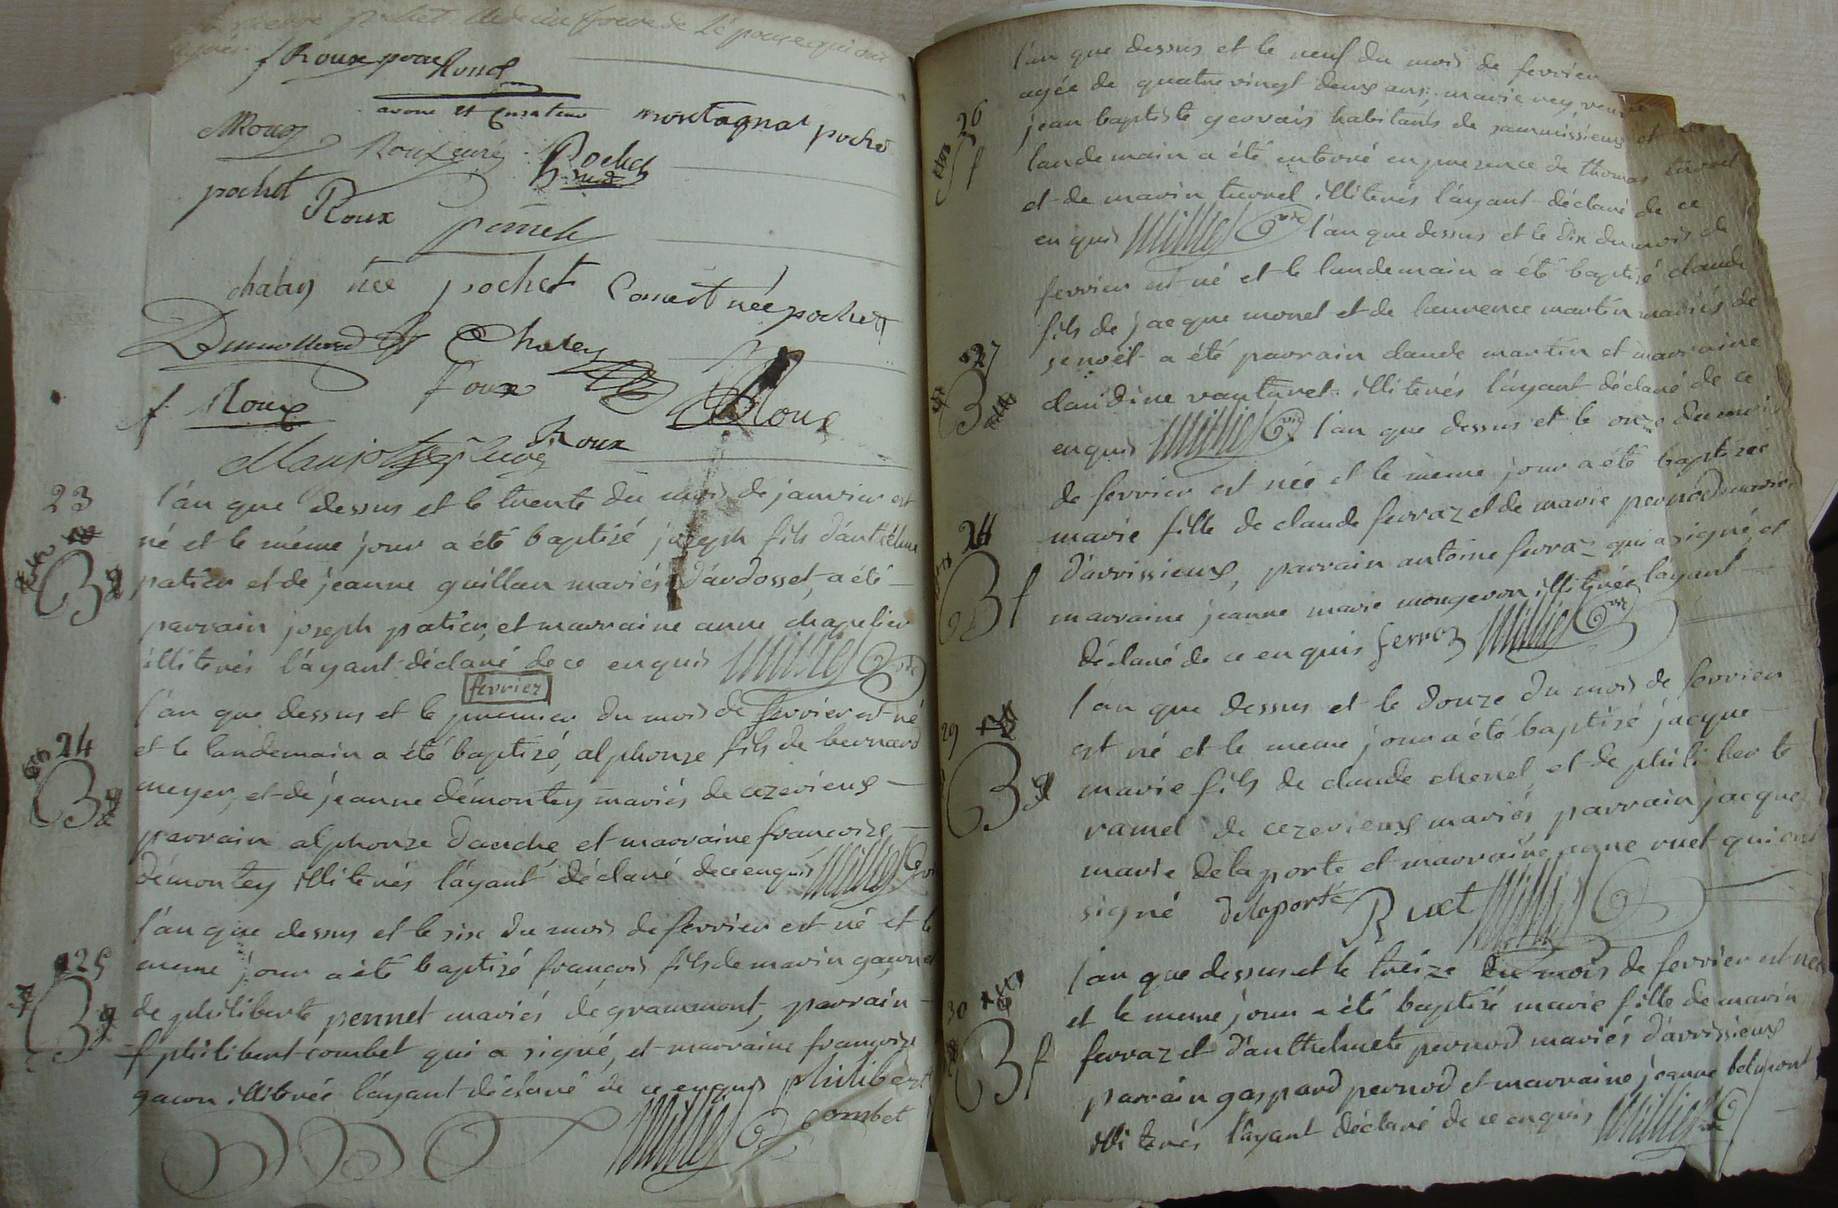 pochet
f Roux
avoue et Curateur montagnat pochet
Roux curé Pochet
pochet Roux
chaley née pochet Comert née pochet
Dumollard Chaley
f Roux Roux Roux
Roux
23
l'an que dessus et le trente du mois de janvier est
né et le même jour a été baptisé joseph fils d'antelme
patier et de jeanne guillan mariés d'ardosset, a été
parrain joseph patier, et marraine anne chapelier
illiterés l'ayant déclaré de ce enquis Millie
fevrier
24
l'an que dessus et le premier du mois de fevrier est né
et le landemain a été baptisé, alphonse fils de bernard
meyer, et de jeanne démontey mariés de cezerieux
parrain alphonse dauche et marraine françoise
démontey illiterés l'ayant déclaré de ce enquis Millie
25
l'an que dessus et le six du mois de fevrier est né et le
meme jour a été baptisé francois fils de marin gauron
de philiberte pennet mariés de grammont, parrain
philibert combet qui a signé, et marraine françoise
gauron illiterée l'ayant déclaré de ce enquis philibert
Millie combet
26
l'an que dessus et le neuf du mois de fevrier
agée de quatre vingt deux ans, marie rey veuve
jean baptiste gervais habitants de sammissieux et
landemain a été enterré en presence de thomas
et de marin turrel illiterés l'ayant déclaré de ce
enquis Millie l'an que dessus et le dix du mois de
27
fevrier est né et le landemain a été baptisé claude
fils de jacque monet et de laurence martin mariés de
a été parrain claude martin et marraine
claudine vautaret illiterés l'ayant déclaré de ce
enquis Millie l'an que dessus et le onze du mois
28
de fevrier est née et le même jour a été baptisée
marie fille de claude ferraz et de marie pernod mariés
d'avrissieux, parrain antoine ferraz qui a signé, et
marraine jeanne marie mongevon illiterée l'ayant
déclaré de ce enquis ferroz Millie
29
l'an que dessus et le douze du mois de fevrier
est né et le meme jour a été baptisé jacque
marie fils de claude chenel et de philiberte
ramel de cezerieux mariés, parrain jacque
marie delaporte et marraine jeane ruet qui ont
signé delaporte Ruet Millie
30
l'an que dessus et le treize du mois de fevrier est née
et le meme jour a été baptisé marie fille de marin
ferraz et d'anthelmete pernod mariés d'avrissieux
parrain gaspard pernod et marraine jeanne belmont
illiterés l'ayant déclaré de ce enquis Millie